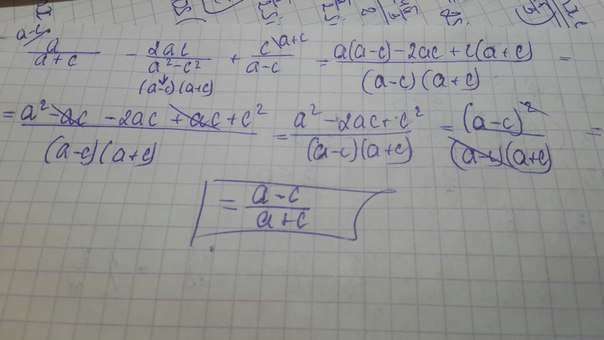 a-c a+c
a/(a+c) - 2ac/(a²-c²) + c/(a-c) = (a(a-c)-2ac+c(a+c))/((a-c)(a+c)) =
(a-c)(a+c)
= (a²-ac-2ac+ac+c²)/((a-c)(a+c)) = (a²-2ac+c²)/((a-c)(a+c)) = (a-c)²/((a-c)(a+c)) =
= (a-c)/(a+c)